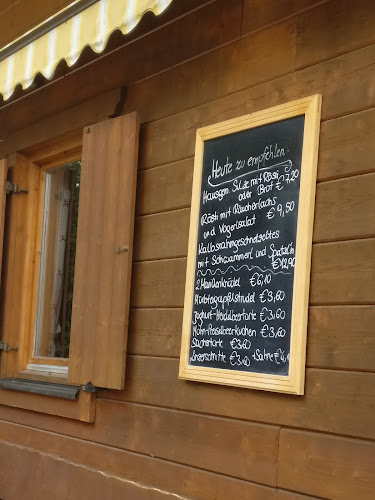 Heute zu empfehlen:
Hausgem. Sülze mit Rösti
oder Brot € 7,20
Rösti mit Räucherlachs
und Vogerlsalat € 9,50
Kalbsrahmgeschnetzeltes
mit Schwammerl und Spätzle
€ 12,90
2 Marillenknödel € 6,10
Mürbteigapfelstrudel € 3,60
Joghurt-Heidelbeertorte € 3,60
Mohn-Preiselbeerkuchen € 3,60
Sachertorte € 3,60
Linzerschnitte € 3,60 + Sahne